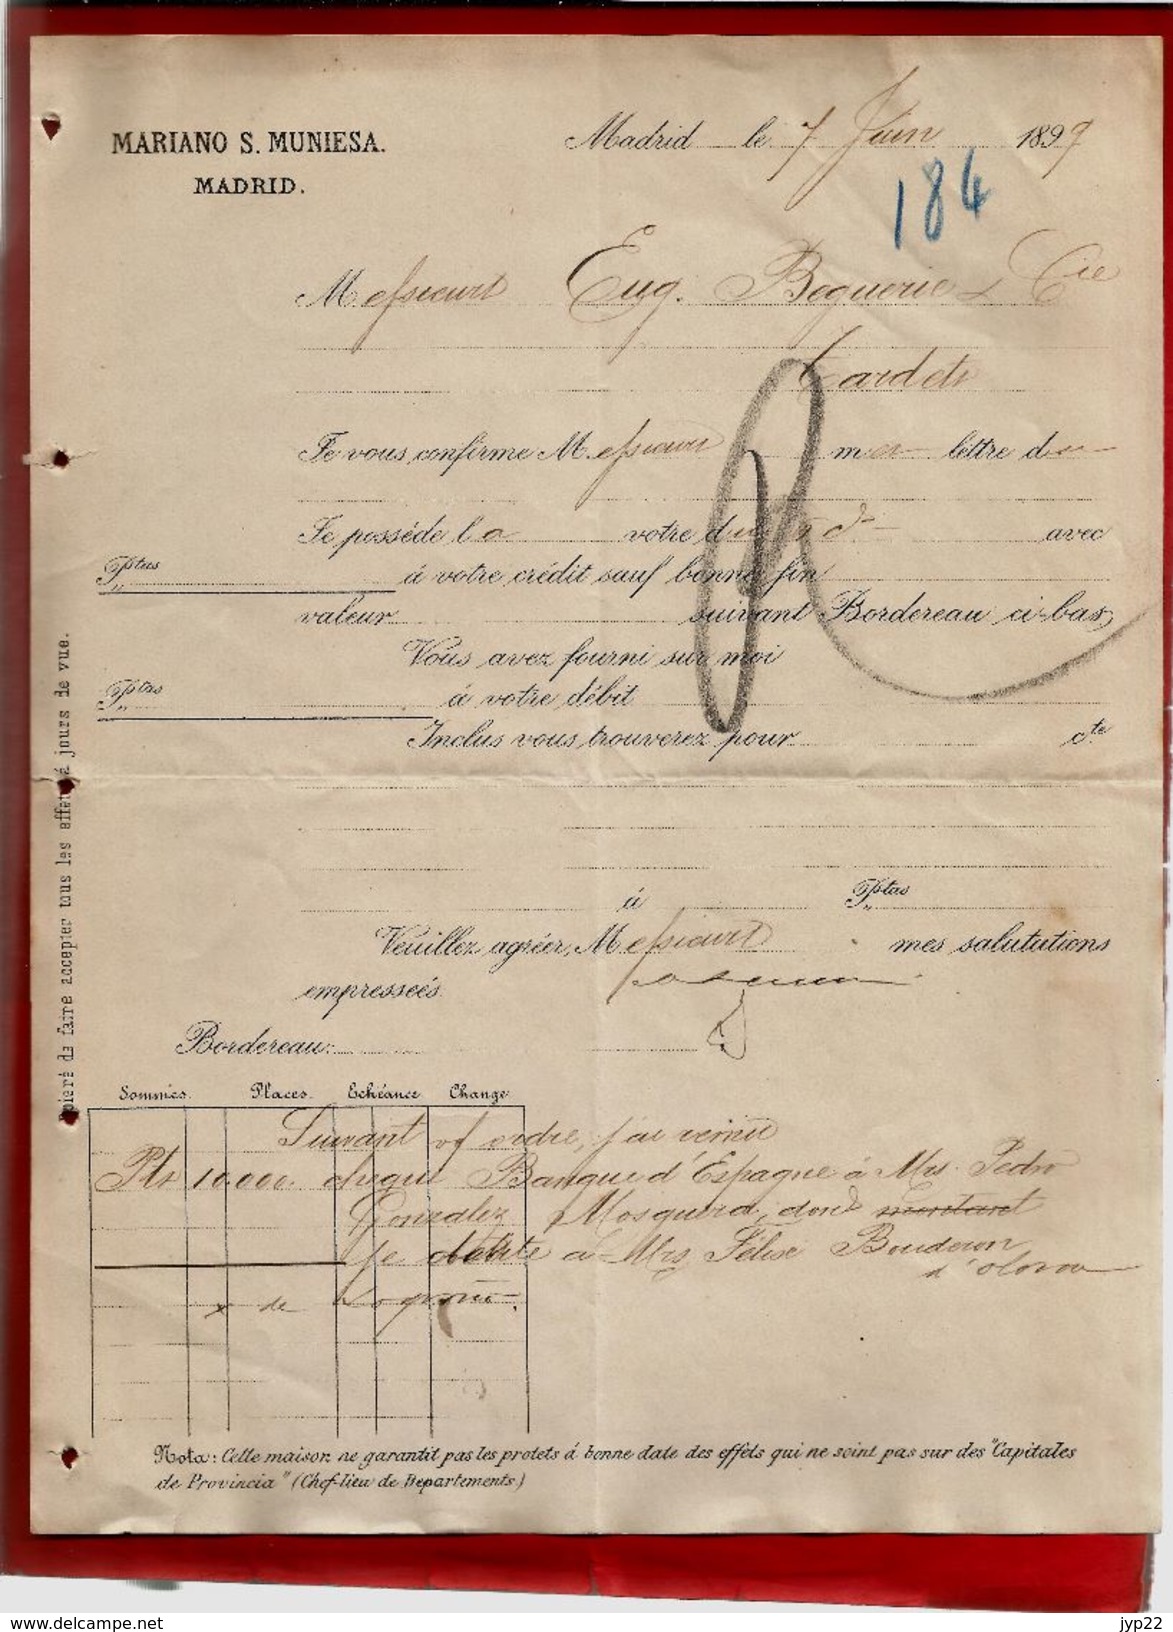 MARIANO S. MUNIESA.
MADRID.
Madrid le 7 Juin 1899
184
Messieurs Eug. Béguerie & Cie
Tardets
Je vous confirme Messieurs ma lettre du
Je posséde la votre du avec
Ptas á votre crédit sauf bonne fin
valeur suivant Bordereau ci-bas
Vous avez fourni sur moi
Ptas á votre débit
Inclus vous trouverez pour cte
á Ptas
Veuillez agréer, Messieurs mes salutations
empresseés.
Bordereau:
Sommes. Places. Echéance Change
Suivant v/ ordre, j'ai remis
Pts 10.000 cheque Banque d'Espagne á Mrs. Pedro
Gonzalez Mosquera, dont montant
je debite a Mrs Félix Bouderon
d'oloron
x de Logroño.
Nota: Cette maison ne garantit pas les protets á bonne date des effets qui ne soint pas sur des "Capitales
de Provincia" (Chef-lieu de Departements)
de faire accepter tous les effets á jours de vue.
www.delcampe.net
jyp22